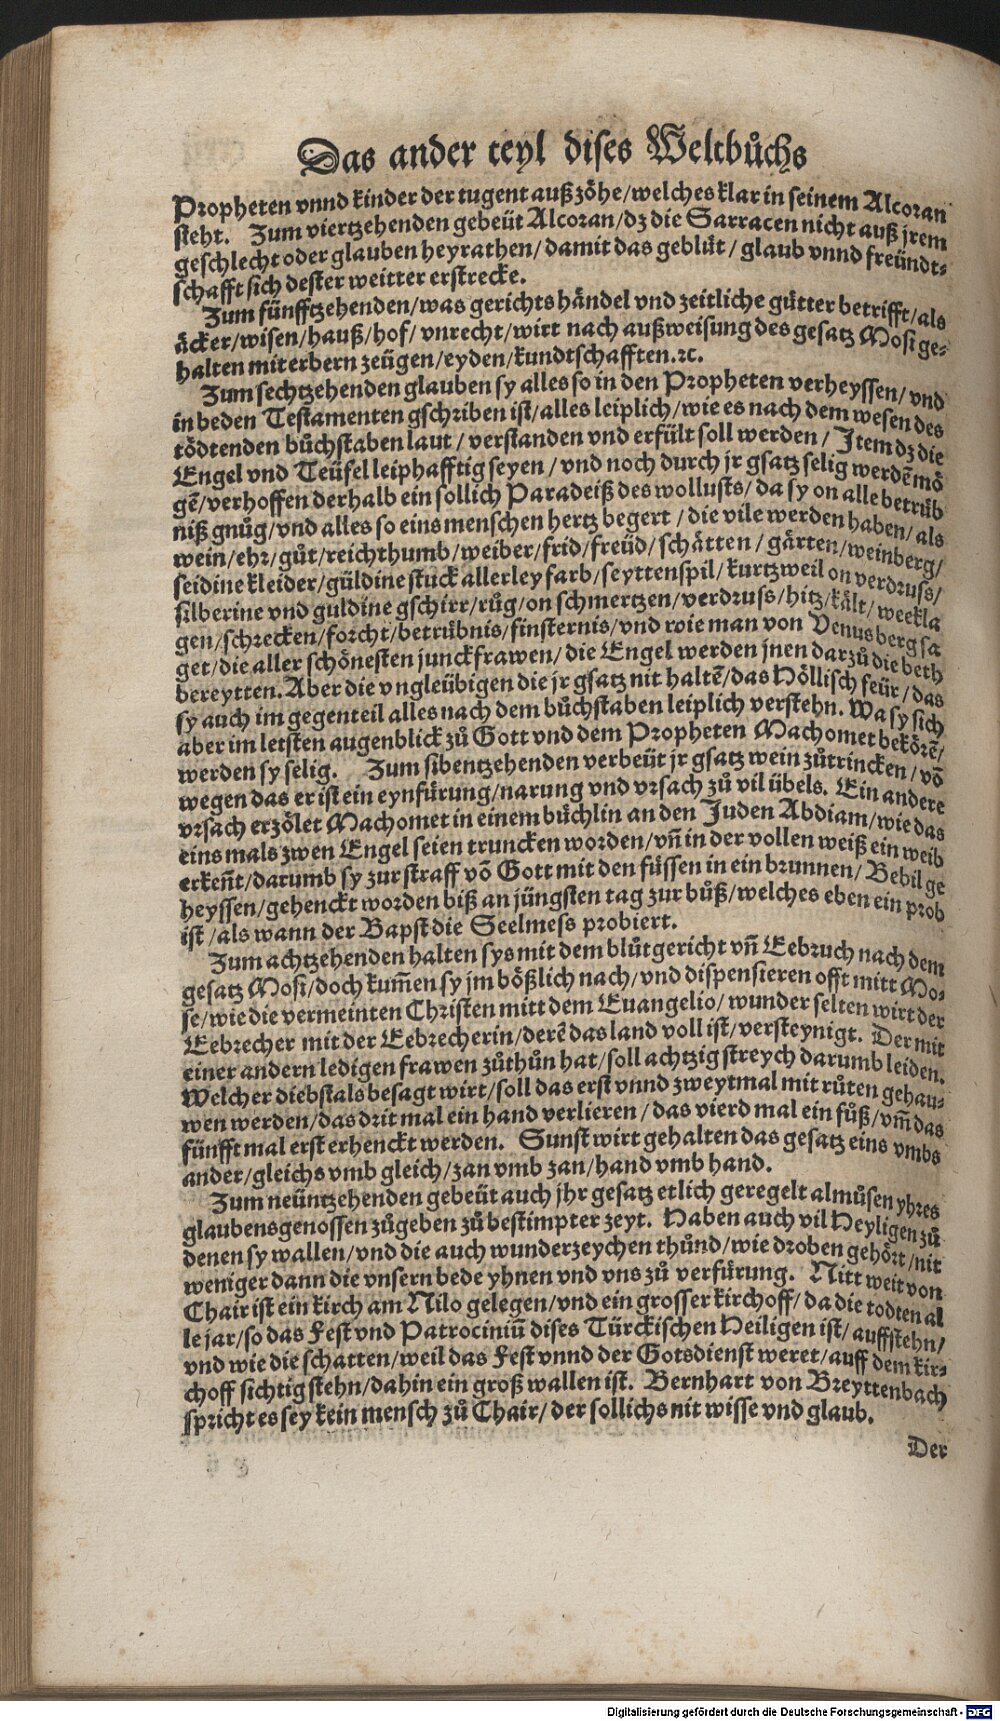 Das ander teyl dises Weltbůchs
Propheten vnnd kinder der tugent außzöhe/welches klar in seinem Alcoran
steht. Zum viertzehenden gebeüt Alcoran/dz die Sarracen nicht auß jrem
geschlecht oder glauben heyrathen/damit das geblüt/glaub vnnd freündt-
schafft sich dester weitter erstrecke.
Zum fünfftzehenden/was gerichts händel vnd zeitliche gütter betrifft/als
äcker/wisen/hauß/hof/vnrecht/wirt nach außweisung des gesatz Mosi ge-
halten mit erbern zeügen/eyden/kundtschafften.⁊c.
Zum sechtzehenden glauben sy alles so in den Propheten verheyssen/vnd
in beden Testamenten gschriben ist/alles leiplich/wie es nach dem wesen des
tödtenden bůchstaben laut/verstanden vnd erfült soll werden/Item dz die
Engel vnd Teüfel leiphafftig seyen/vnd noch durch jr gsatz selig werdē mö
gē/verhoffen derhalb ein sollich Paradeiß des wollusts/da sy on alle betrüb
niß gnůg/vnd alles so eins menschen hertz begert/die vile werden haben/als
wein/ehr/gůt/reichthumb/weiber/frid/freüd/schätten/gärten/weinberg/
seidine kleider/güldine stuck allerley farb/seyttenspil/kurtzweil on verdruss/
silberine vnd guldine gschirr/růg/on schmertzen/verdruss/hitz/kält/weekla
gen/schrecken/forcht/betrübnis/finsternis/vnd wie man von Venus berg sa
get/die aller schönesten junckfrawen/die Engel werden jnen darzů die beth
bereytten. Aber die vngleübigen die jr gsatz nit haltē/das Höllisch feür/das
sy auch im gegenteil alles nach dem bůchstaben leiplich verstehn. Wa sy sich
aber im letsten augenblick zů Gott vnd dem Propheten Machomet bekörē/
werden sy selig. Zum sibentzehenden verbeüt jr gsatz wein zůtrincken/vō
wegen das er ist ein eynfürung/narung vnd vrsach zů vil übels. Ein andere
vrsach erzölet Machomet in einem büchlin an den Juden Abdiam/wie das
eins mals zwen Engel seien truncken worden/vñ in der vollen weiß ein weib
erkeñt/darumb sy zur straff vō Gott mit den füssen in ein brunnen/Bebil ge
heyssen/gehenckt worden biß an jüngsten tag zur bůß/welches eben ein prob
ist/als wann der Bapst die Seelmess probiert.
Zum achtzehenden halten sys mit dem blůtgericht vñ Eebruch nach dem
gesatz Mosi/doch kum̃en sy jm bößlich nach/vnd dispensieren offt mitt Mo-
se/wie die vermeinten Christen mitt dem Euangelio/wunder selten wirt der
Eebrecher mit der Eebrecherin/derē das land voll ist/versteynigt. Der mit
einer andern ledigen frawen zůthůn hat/soll achtzig streych darumb leiden.
Welcher diebstals besagt wirt/soll das erst vnnd zweytmal mit růten gehau-
wen werden/das drit mal ein hand verlieren/das vierd mal ein fůß/vm̃ das
fünfft mal erst erhenckt werden. Sunst wirt gehalten das gesatz eins vmbs
ander/gleichs vmb gleich/zan vmb zan/hand vmb hand.
Zum neüntzehenden gebeüt auch jhr gesatz etlich geregelt almůsen yhres
glaubensgenossen zůgeben zů bestimpter zeyt. Haben auch vil Heyligen zů
denen sy wallen/vnd die auch wunderzeychen thůnd/wie droben gehört/nit
weniger dann die vnsern bede yhnen vnd vns zů verfürung. Nitt weit von
Chair ist ein kirch am Nilo gelegen/vnd ein grosser kirchoff/da die todten al
le jar/so das Fest vnd Patrociniū dises Türckischen Heiligen ist/auffstehn/
vnd wie die schatten/weil das Fest vnnd der Gotsdienst weret/auff dem kir-
choff sichtig stehn/dahin ein groß wallen ist. Bernhart von Breyttenbach
spricht es sey kein mensch zů Chair/der sollichs nit wisse vnd glaub.
Der
Digitalisierung gefördert durch die Deutsche Forschungsgemeinschaft - DFG